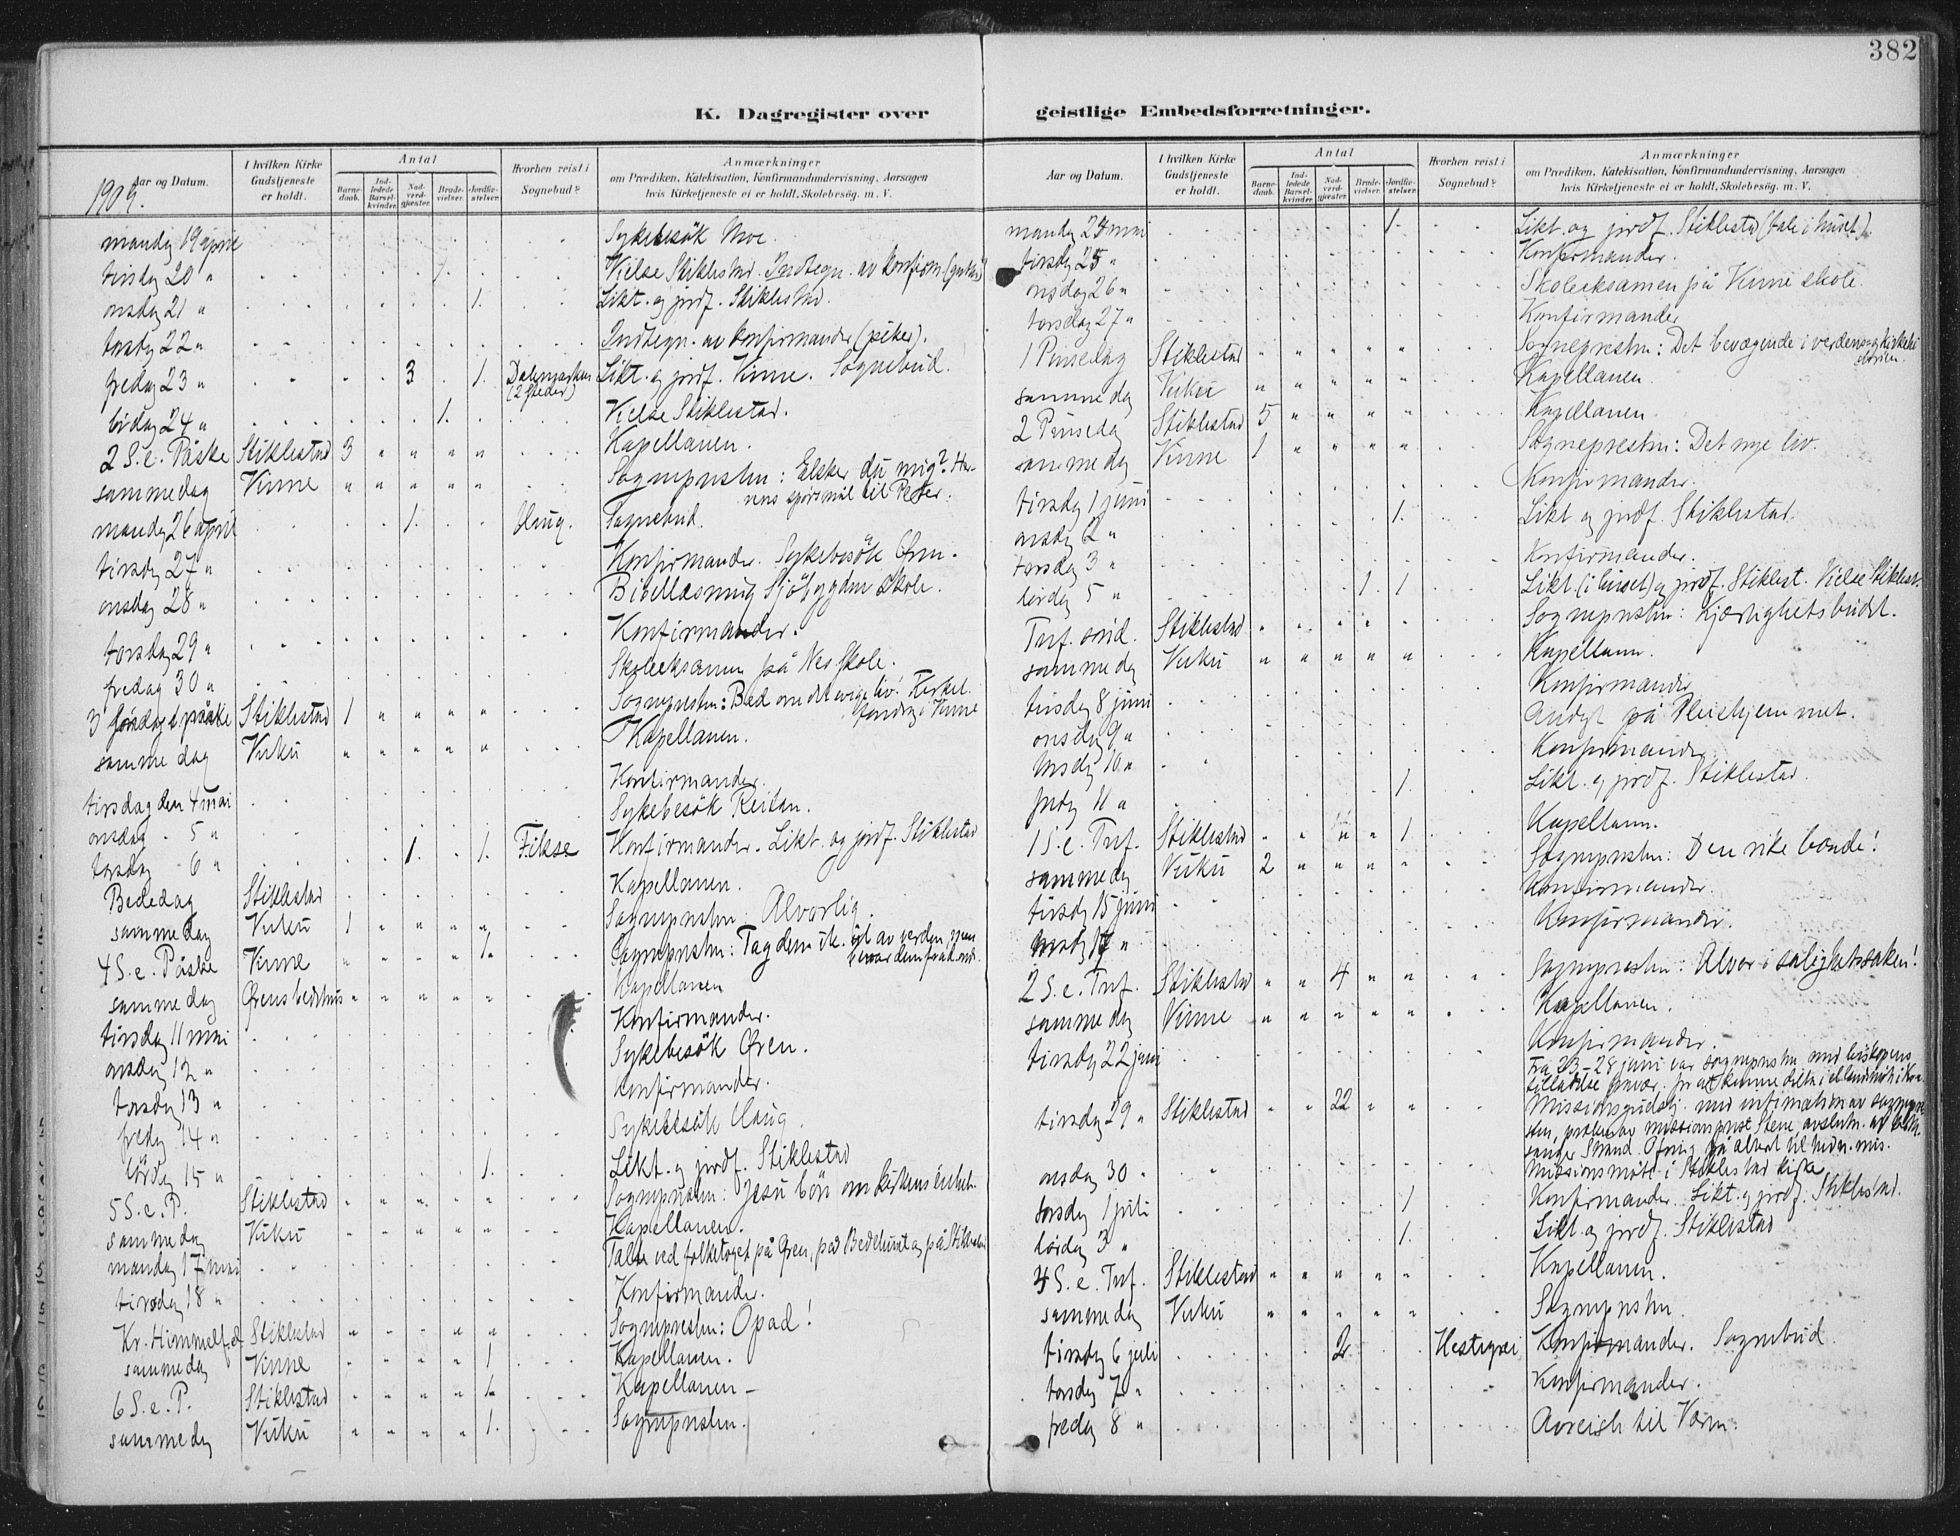 382
K. Dagregister over geistlige Embedsforretninger.
Aar og Datum. I hvilken Kirke Gudstjeneste er holdt. Antal Barne-daab. Ind-ledede Barsel-kvinder. Nad-verd-gjæster. Brude-vielser. Jordfæ-stelser. Hvorhen reist i Sognebud? Anmærkninger om Prædiken, Katekisation, Konfirmandundervisning, Aarsagen hvis Kirketjeneste ei er holdt, Skolebesøg. m. V.
1909.
mandag 19 april Sykebesök Moe
tirsdag 20 " 1. Vielse Stiklestad. Indtegn. av konfirm (gutter)
onsdag 21 " 1. Likt. og jordf. Stiklestad.
torsdag 22 " Indtegn. av konfirmander (piker).
fredag 23 " 3 1. Dalemarken (2 steder) Likt. og jordf. Vinne. Sognebud.
lördag 24 " 1. Vielse Stiklestad.
2 S. e. Påske Stiklestad 3 " " " " Kapellanen.
samme dag Vinne " " " " " Sognepresten: Elsker du mig? Her-
rens spörsmål til Peter.
mandag 26 april 1. Haug. Sognebud.
tirsdag 27 " Konfirmander. Sykebesök Ören.
onsdag 28 " Bibellæsning Sjöbygden skole.
torsdag 29 " Konfirmander.
fredag 30 " Skoleeksamen på Nes Skole.
3 söndag e. påske Stiklestad 1 " " " " Sognepresten: Bed om det evige liv!
foredrag i Vinne
samme dag Vuku " " " " " Kapellanen.
tirsdag den 4 mai Konfirmander.
onsdag - 5 " Sykebesök Reitan.
torsdag - 6 " 1. 1. Fikse Konfirmander. Likt. og jordf. Stiklestad
Bededag Stiklestad Kapellanen.
samme dag Vuku 1 " " " " Sognepresten. Alvorlig.
4 S. e. Påske Vinne " " " " 1. Sognepresten: Tag dem ik. ut av verden, men
bevar dem fra d. onde.
samme dag Örens bedehus " " " " " Kapellanen
tirsdag 11 mai Konfirmander.
onsdag 12 " Sykebesök Ören.
torsdag 13 " Konfirmander.
fredag 14 " Sykebesök Haug.
lördag 15 " 1. Likt. og jordf. Stiklestad
5 S. e. P. Stiklestad " " " " " Sognepresten: Jesu bön om kirkens enhet.
samme dag Vuku " " " " " Kapellanen.
mandag 17 mai Taler ved folketoget på Ören, ved Bedehuset og på Stiklestad
tirsdag 18 " Konfirmander.
Kr. Himmelf. d. Stiklestad " " " " " Sognepresten: Opad!
samme dag Vinne " " " " 1 Kapellanen.
6 S. e. P. Stiklestad " " " " 1. Kapellanen -
samme dag Vuku " " " " 1. Sognepresten.
Aar og Datum. I hvilken Kirke Gudstjeneste er holdt. Antal Barne-daab. Ind-ledede Barsel-kvinder. Nad-verd-gjæster. Brude-vielser. Jordfæ-stelser. Hvorhen reist i Sognebud? Anmærkninger om Prædiken, Katekisation, Konfirmandundervisning, Aarsagen hvis Kirketjeneste ei er holdt, Skolebesøg. m. V.
mandag 24 mai 1. Likt. og jordf. Stiklestad (tale i huset).
tirsdag 25 " Konfirmander.
onsdag 26 " Skoleeksamen på Vinne skole.
torsdag 27 " Konfirmander
1 Pinsedag Stiklestad " " " " " Sognepresten: Det bevægende i verdens og kirkehi
storien.
samme dag Vuku " " " " " Kapellanen
2 Pinsedag Stiklestad 5 " " " " Kapellanen.
samme dag Vinne 1 " " " " Sognepresten: Det nye liv.
tirsdag 1 juni Konfirmander.
onsdag 2 " 1. Likt og jordf. Stiklestad.
torsdag 3 " Konfirmander.
lördag 5 " 1 1 Likt. (i huset) og jordf. Stiklest. Vielse Stiklest.
Tref. sönd. Stiklestad " " " " " Sognepresten: Kjærlighetsbudet.
samme dag Vuku " " " " " Kapellanen.
tirsdag 8 juni Konfirmander
onsdag 9 " Andagt på Pleiehjemmet.
torsdag 10 " Konfirmander
fredag 11 " 1. Likt. og jordf. Stiklestad.
1 S. e. Tref. Stiklestad " " " " 1. Kapellanen.
samme dag Vuku 2 " " " " Sognepresten: Den rike bonde!
tirsdag 15 juni Konfirmander.
torsdag 17 " Konfirmander.
2 S. e. Tref. Stiklestad " " 4 " " Sognepresten: Alvor i salighetssaken!
samme dag Vinne " " " " " Kapellanen.
tirsdag 22 juni Konfirmander.
Fra 23-28 juni var sognepresten med biskopens
tilladelse fravær. for at kunne delta i
tirsdag 29 " Stiklestad " " 22 " " Missionsgudstj. med intimation av sognepre
sten, prædiken av missionsprest Stene, avslutn. av
Strand. Ofring på alteret til hedn. mis.
Missionsmöte i Stiklestad kirke
onsdag 30 "
torsdag 1 juli 1 Konfirmander. Likt. og jordf. Stiklestad.
lördag 3 " 1. Likt og jordf. Stiklestad
4 S. e. Tref. Stiklestad " " " " " Kapellanen.
samme dag Vuku " " " " " Sognepresten.
tirsdag 6 juli 2 Konfirmander. Sognebud.
torsdag 7 " Konfirmander.
fredag 8 " Avreist til